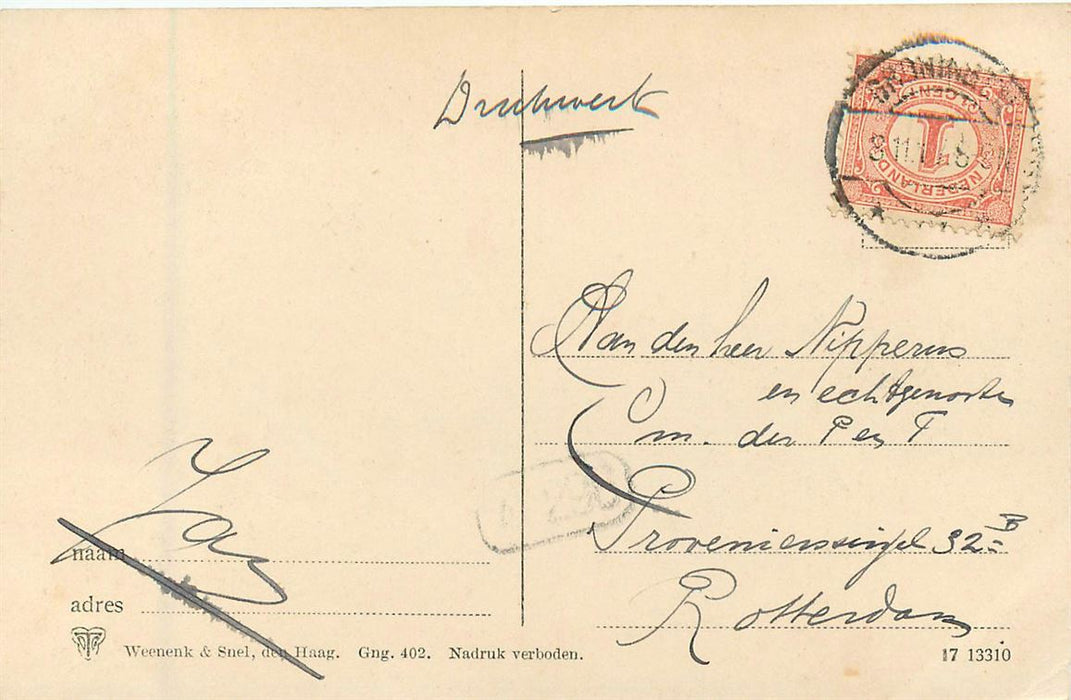 Drukwerk
GRONINGEN
NEDERLAND
1
8.11.1
Aan den heer Nipperus
en echtgenoote
Cm. der P en T
Provenierssingel 32 B
Rotterdam
Jan
naam
adres
Weenenk & Snel, den Haag. Gng. 402. Nadruk verboden.
17 13310